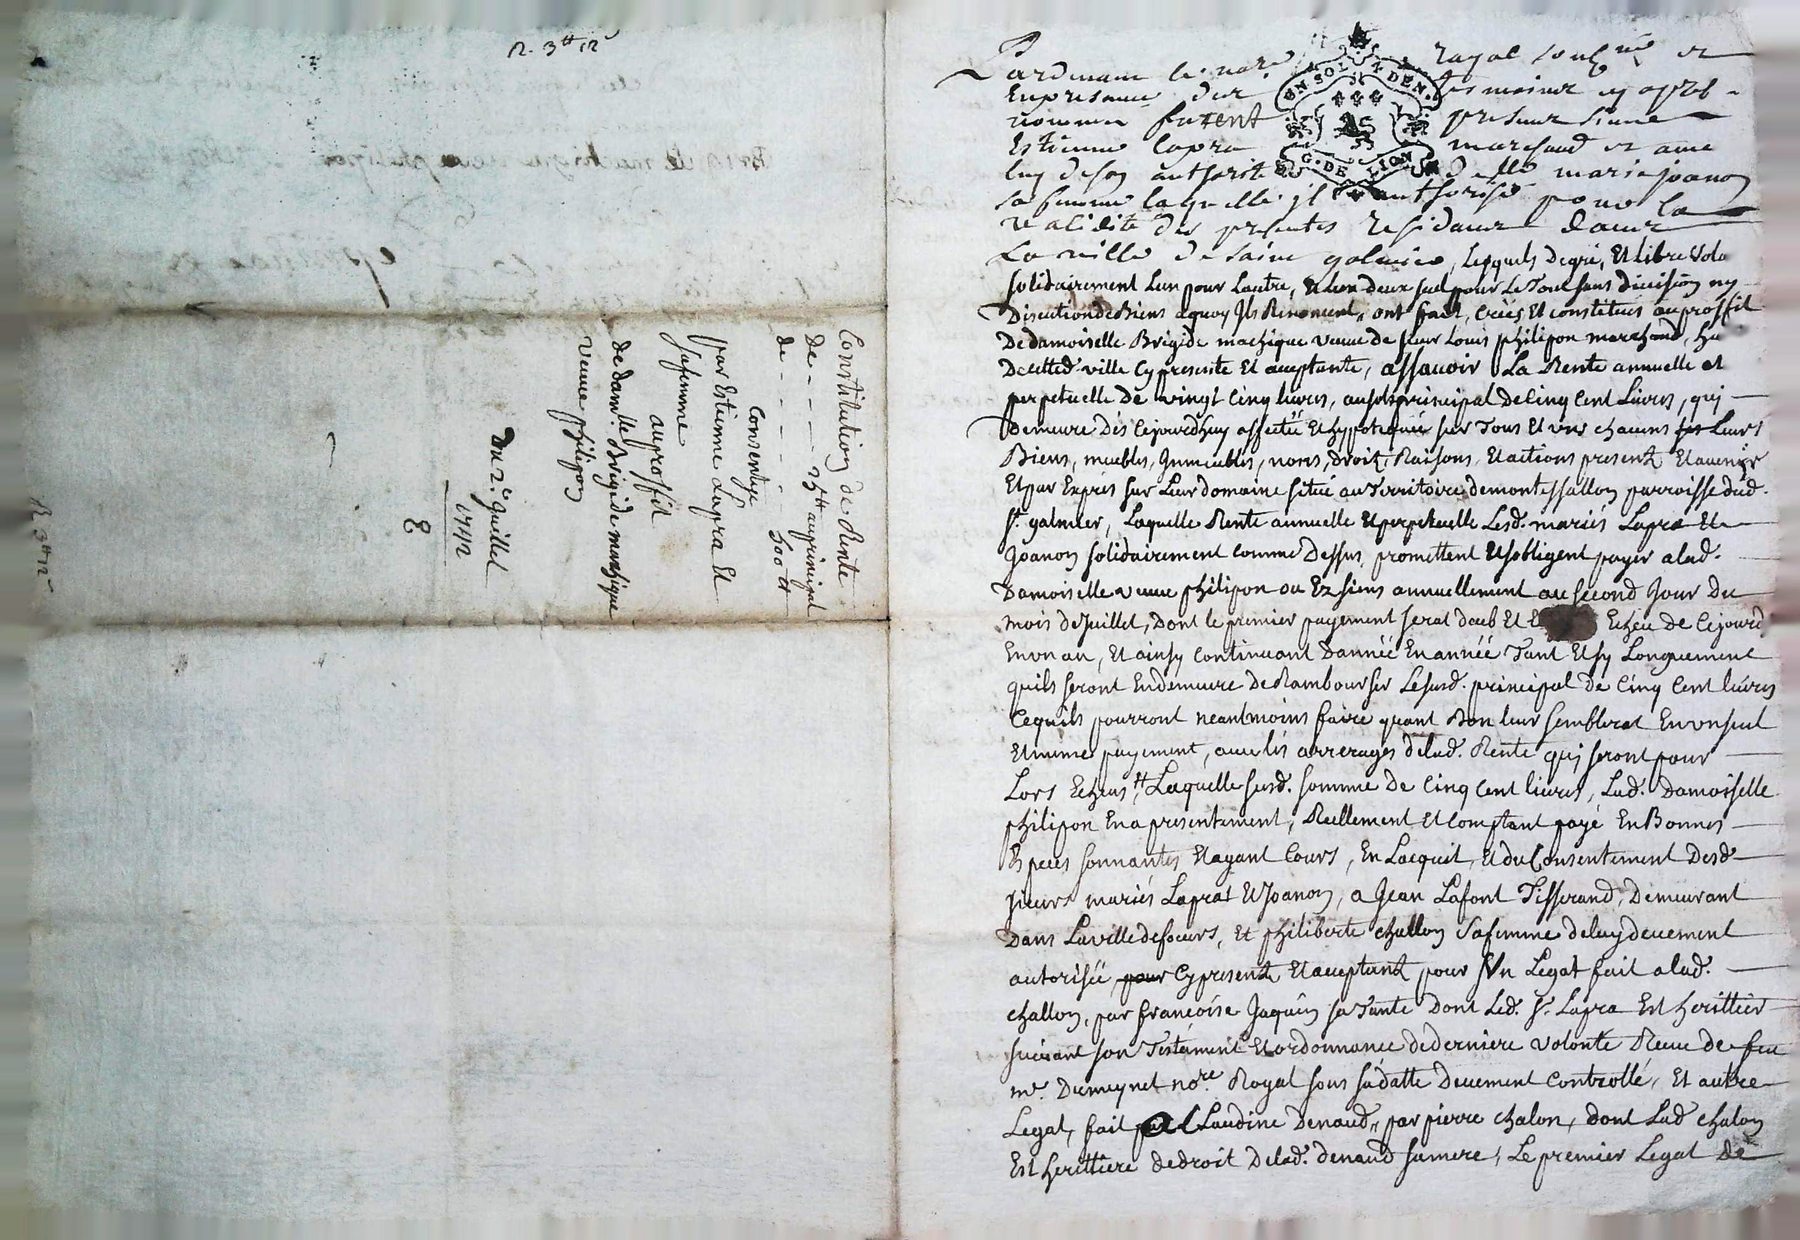 R. 3ᵗᵗ 12ˢ
Constitution de Rente
De - - - - 25ᵗᵗ au principal
de - - - - - - 500ᵗᵗ
Consentye
par Estienne Lapra Et
sa femme
au proffit
de damˡˡᵉ Brigide machique
veuve philipon
Du 2ᵉ Juillet
1742
R 3ᵗᵗ 12ˢ
UN SOL 4 DEN.
G. DE LION
Pardevant le noʳᵉ royal soubⁿᵉ et
En presence des tesmoins
nommes furent presents sieur
Estienne Lapra marchand et avec
luy de son authorité dˡˡᵉ marie joanon
sa femme laquelle il authorise pour la
validité des presentes residants dans
La ville de saint galmier, Lesquels de gré, Et libre Volo
solidairement L'un pour L'autre, Et L'un deux seul pour Le Tout sans division ny
Discution de Biens a quoy Ils Renoncent, ont fait, Créés Et constitués au proffit
De damoiselle Brigide machique veuve de sieur Louis philipon marchand, ha
De cetted. ville Cy presente Et acceptante, assavoir La Rente annuelle et
perpetuelle de vingt Cinq livres, au sols principal De Cinq Cent Livres, qui
demeure Dès Cejourdhuy affecté Et hypotequé sur Tous Et uns chacuns ses Leurs
Biens, meubles, Immeubles, noms, droits, Raisons, Et actions presents Et avenir
Et par Exprès sur Leur domaine situé au Territoire de montessallon parroisse dud.
sᵗ galmier, Laquelle Rente annuelle Et perpetuelle Lesd. mariés Lapra Et
Joanon solidairement comme Dessus, promettent Et s'obligent payer a lad.
Damoiselle veuve philipon ou Ez siens annuellement au second Jour Du
mois de Juillet, Dont le premier payement serat doub Et Echeu de Cejourd
En un an, Et ainsy Continuant d'année En année Tant Et sy Longuement
quils seront En demeure De Rambourser Lesusd. principal de Cinq Cent livres
Ce quils pourront neantmoins faire quant Bon leur semblerat En un seul
Et même payement, avec les arrerages de lad. Rente qui seront pour
Lors Echeus, Laquelle susd. somme de Cinq Cent livres, Lad. Damoiselle
philipon En a presentement, Réellement Et Comptant payé En Bonnes
Especes sonnantes Et ayant Cours, En L'acquit, Et du Consentement Desd.
sieurs mariés Laprat Et Joanon, a Jean Lafont Tisserand, Demeurant
Dans La ville de soeurs, Et philiberte challon sa femme de luy deuement
autorisée pour Cy presents Et acceptants pour Un Legat fait a lad.
challon, par françoise Jaquin sa Tante Dont Led. sʳ. Lapra Est herittier
suivant son Testament Et ordonnance de derniere volonté Receu de feu
mᵉ. Dumeynet noʳᵉ Royal sous sa datte Deuement Controllé, Et autre
Legat, fait a Claudine Denaud, par pierre chalon, dont Lad chalon
Est herittiere de droit De lad. denaud sa mere, Le premier Legat de